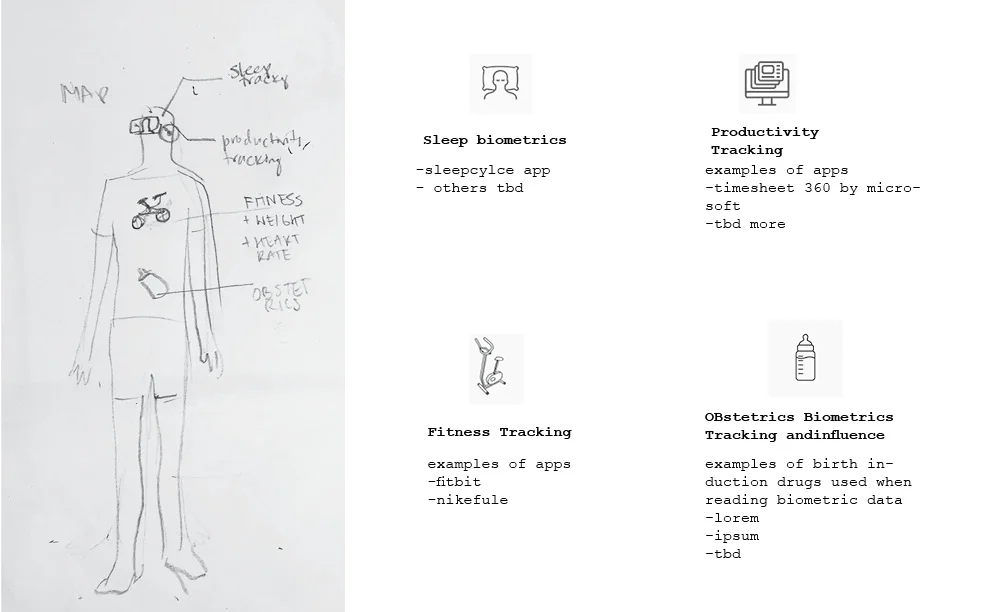 MAP
sleep
tracky
productivity
tracking
FITNESS
+ WEIGHT
+ HEART
RATE
OBSTET
RICS
Sleep biometrics
-sleepcylce app
- others tbd
Productivity
Tracking
examples of apps
-timesheet 360 by micro-
soft
-tbd more
Fitness Tracking
examples of apps
-fitbit
-nikefule
OBstetrics Biometrics
Tracking andinfluence
examples of birth in-
duction drugs used when
reading biometric data
-lorem
-ipsum
-tbd